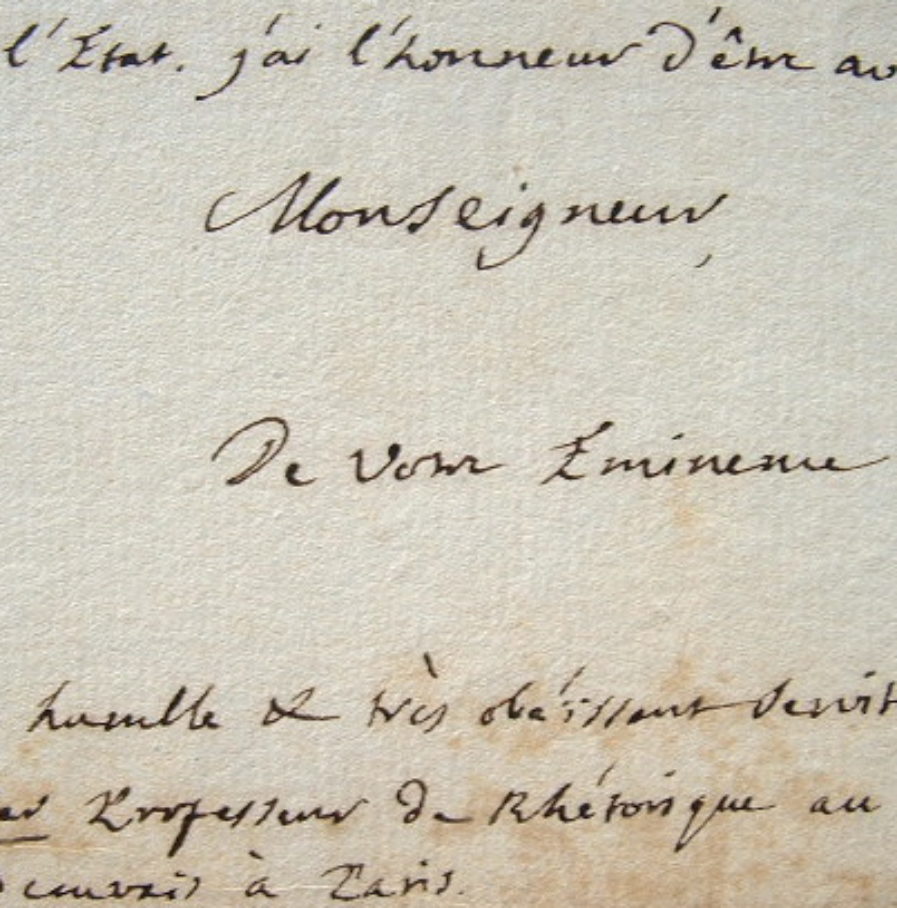 l'Etat. j'ai l'honneur d'être av
Monseigneur,
De Votre Eminence
humble & très obéissant Servit
Professeur de Rhétorique au
eauvais à Paris.